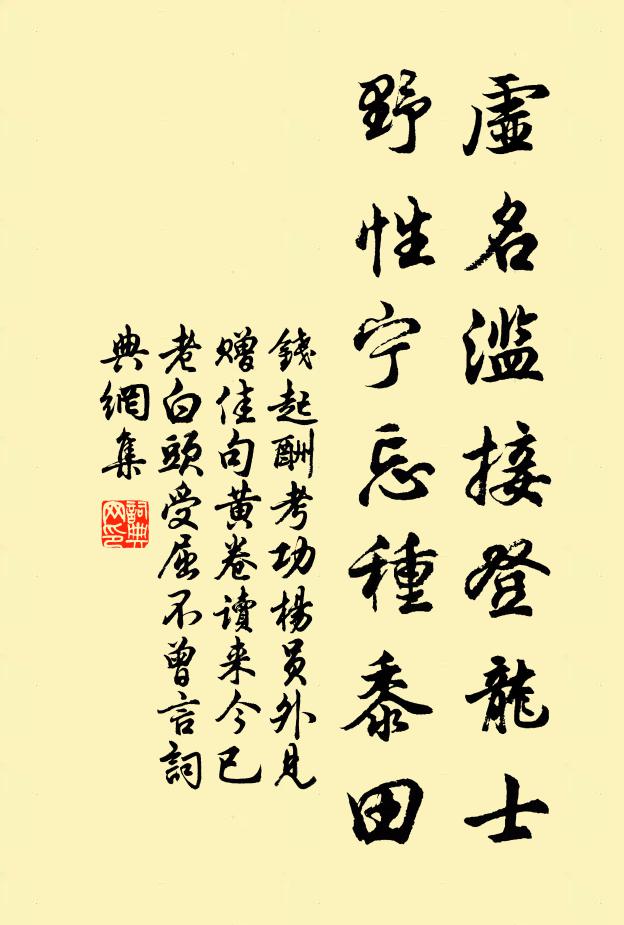 虛名濫接登龍士
野性宁忘種黍田
錢起酬考功楊員外見
贈佳句黃卷讀来今已
老白頭受屈不曾言詞
典網集
詞典
网印